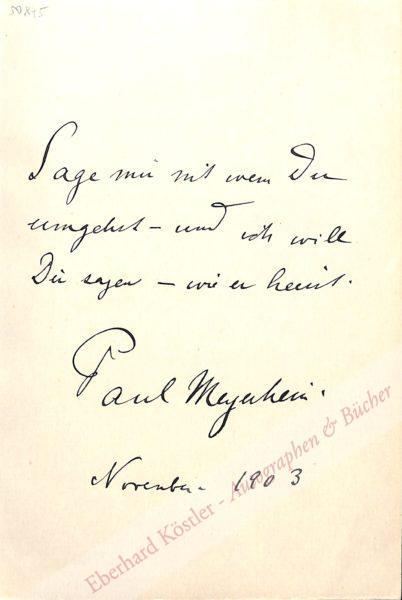 Sage mir mit wem Du
umgehst – und ich will
Dir sagen – wie er heisst.
Paul Meyerheim.
November 1903
Eberhard Köstler - Autographen & Bücher